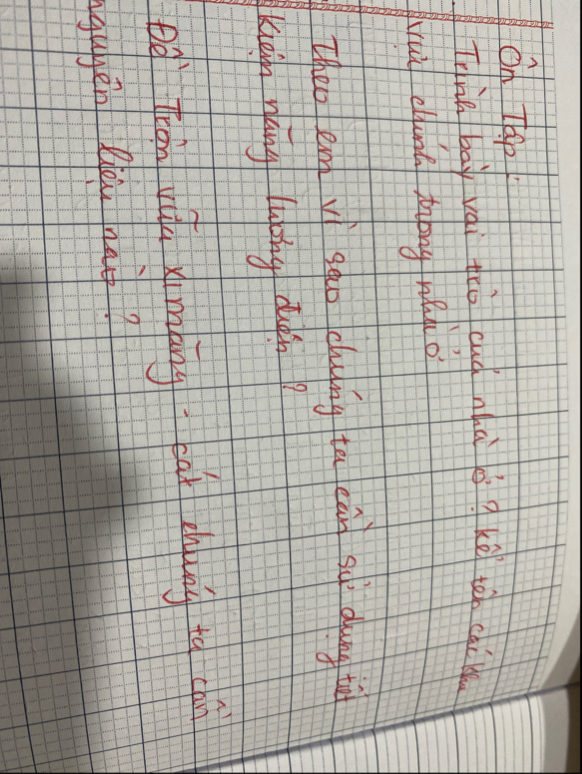 Ôn Tập:
Trình bày vai trò của nhà ở? kể tên các khu
vực chính trong nhà ở
Theo em vì sao chúng ta cần sử dụng tiết
kiệm năng lượng điện?
Để Trộn vữa xi măng - cát chúng ta cần
nguyên liệu nào?